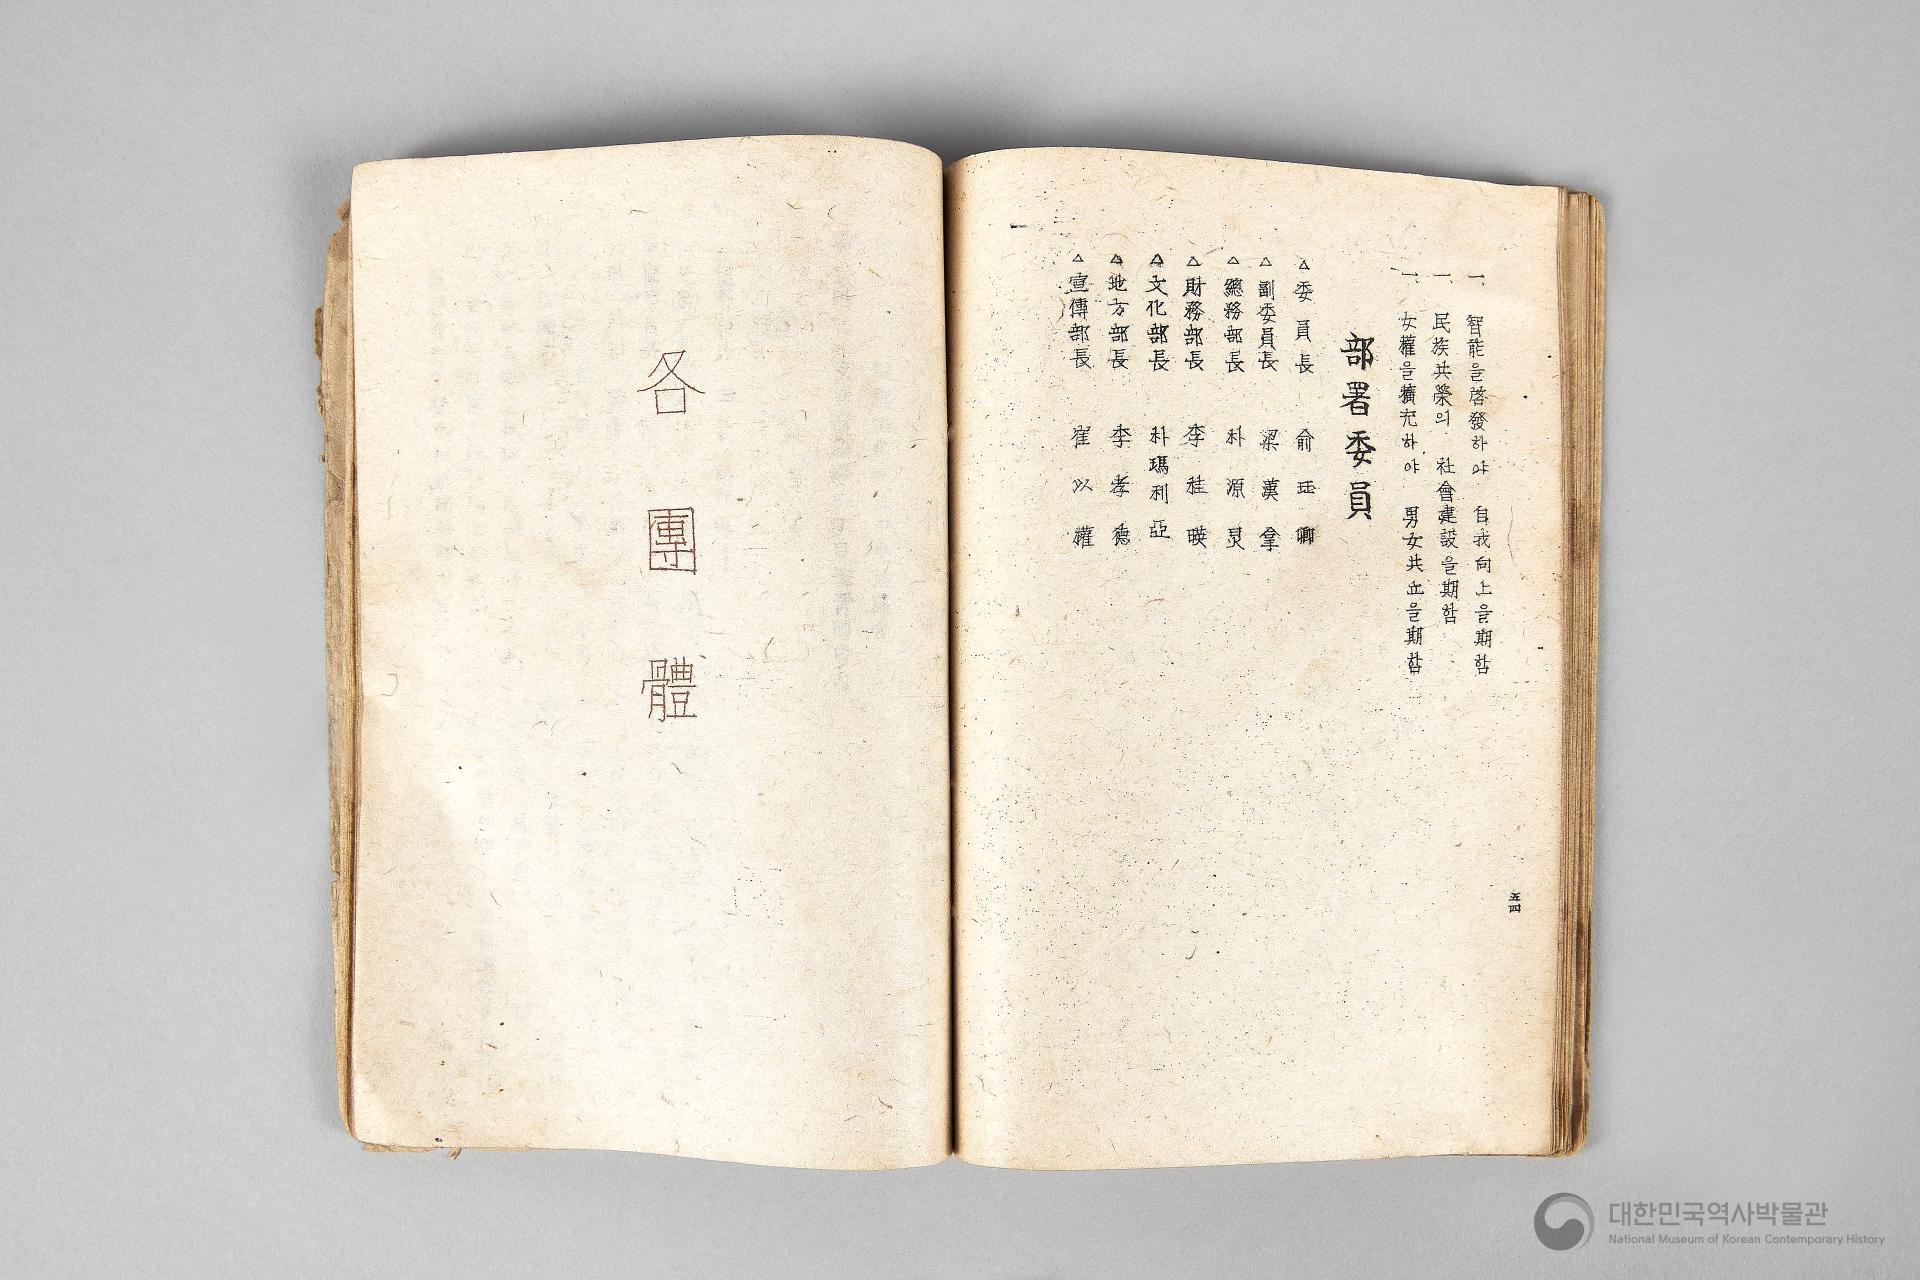 一、智能을啓發하야 自我向上을期함
一、民族共榮의 社會建設을期함
一、女權을擴充하야 男女共立을期함
部署委員
△委員長 俞珏卿
△副委員長 梁漢拿
△總務部長 朴源炅
△財務部長 李桂暎
△文化部長 朴瑪利亞
△地方部長 李孝德
△宣傳部長 崔以權
五四
各團體
대한민국역사박물관
National Museum of Korean Contemporary History